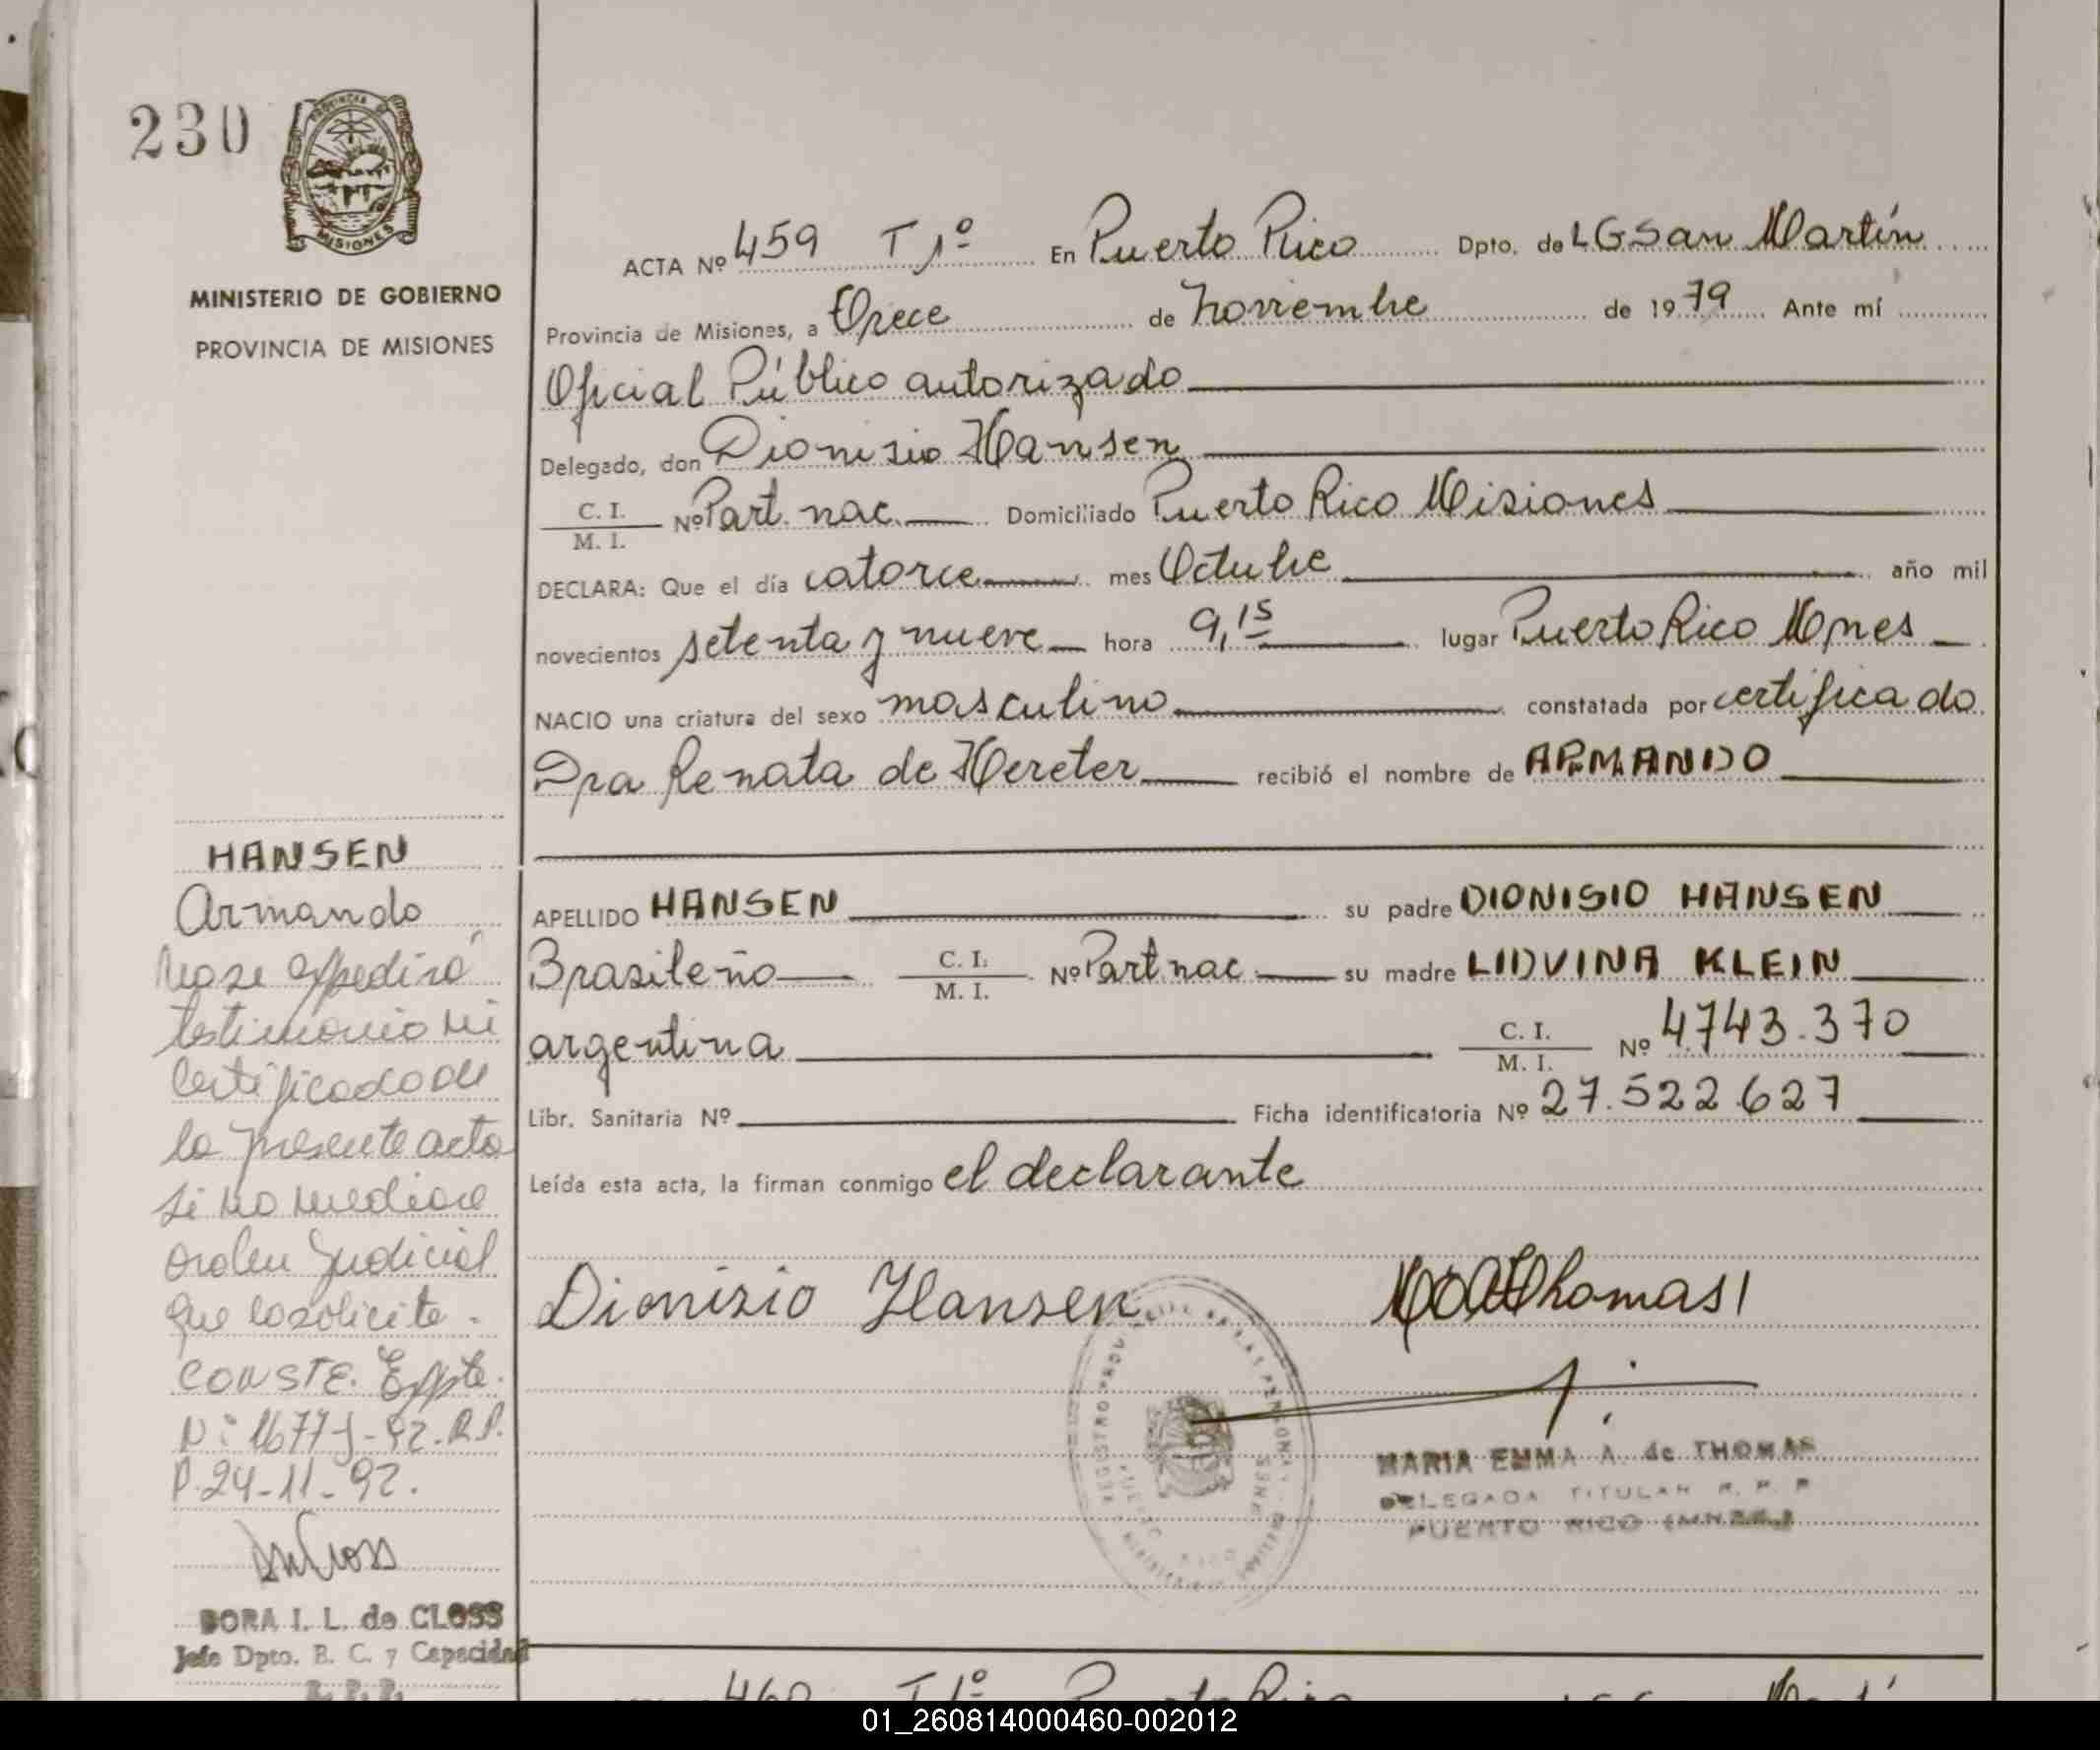 230
PROVINCIA DE
MISIONES
MINISTERIO DE GOBIERNO
PROVINCIA DE MISIONES
ACTA Nº 459 T 1º En Puerto Rico Dpto. de L G San Martín
Provincia de Misiones, a trece de noviembre de 1979 Ante mí
Oficial Público autorizado
Delegado, don Dionisio Hansen
C. I. / M. I. Nº Part. nac. Domiciliado Puerto Rico Misiones
DECLARA: Que el día catorce mes Octubre año mil
novecientos setenta y nueve hora 9,15 lugar Puerto Rico Mnes
NACIO una criatura del sexo masculino constatada por certificado
Dra Renata de Hereter recibió el nombre de ARMANDO
APELLIDO HANSEN su padre DIONISIO HANSEN
Brasileño C. I. / M. I. Nº Part nac su madre LIDVINA KLEIN
argentina C. I. / M. I. Nº 4.743.370
Libr. Sanitaria Nº Ficha identificatoria Nº 27.522.627
Leída esta acta, la firman conmigo el declarante
Dionizio Hansen
MARIA EMMA A. de THOMAS
DELEGADA TITULAR R. P. P.
PUERTO RICO (MNES.)
HANSEN
Armando
No se expedirá
testimonio ni
certificado de
la presente acta
si no mediare
orden judicial
que lo solicite.
CONSTE. Expte.
P. 24-11-92.
DORA I. L. de CLOSS
Jefe Dpto. E. C. y Capacidad
R. P. P.
460 T 1º Puerto Rico
01_260814000460-002012